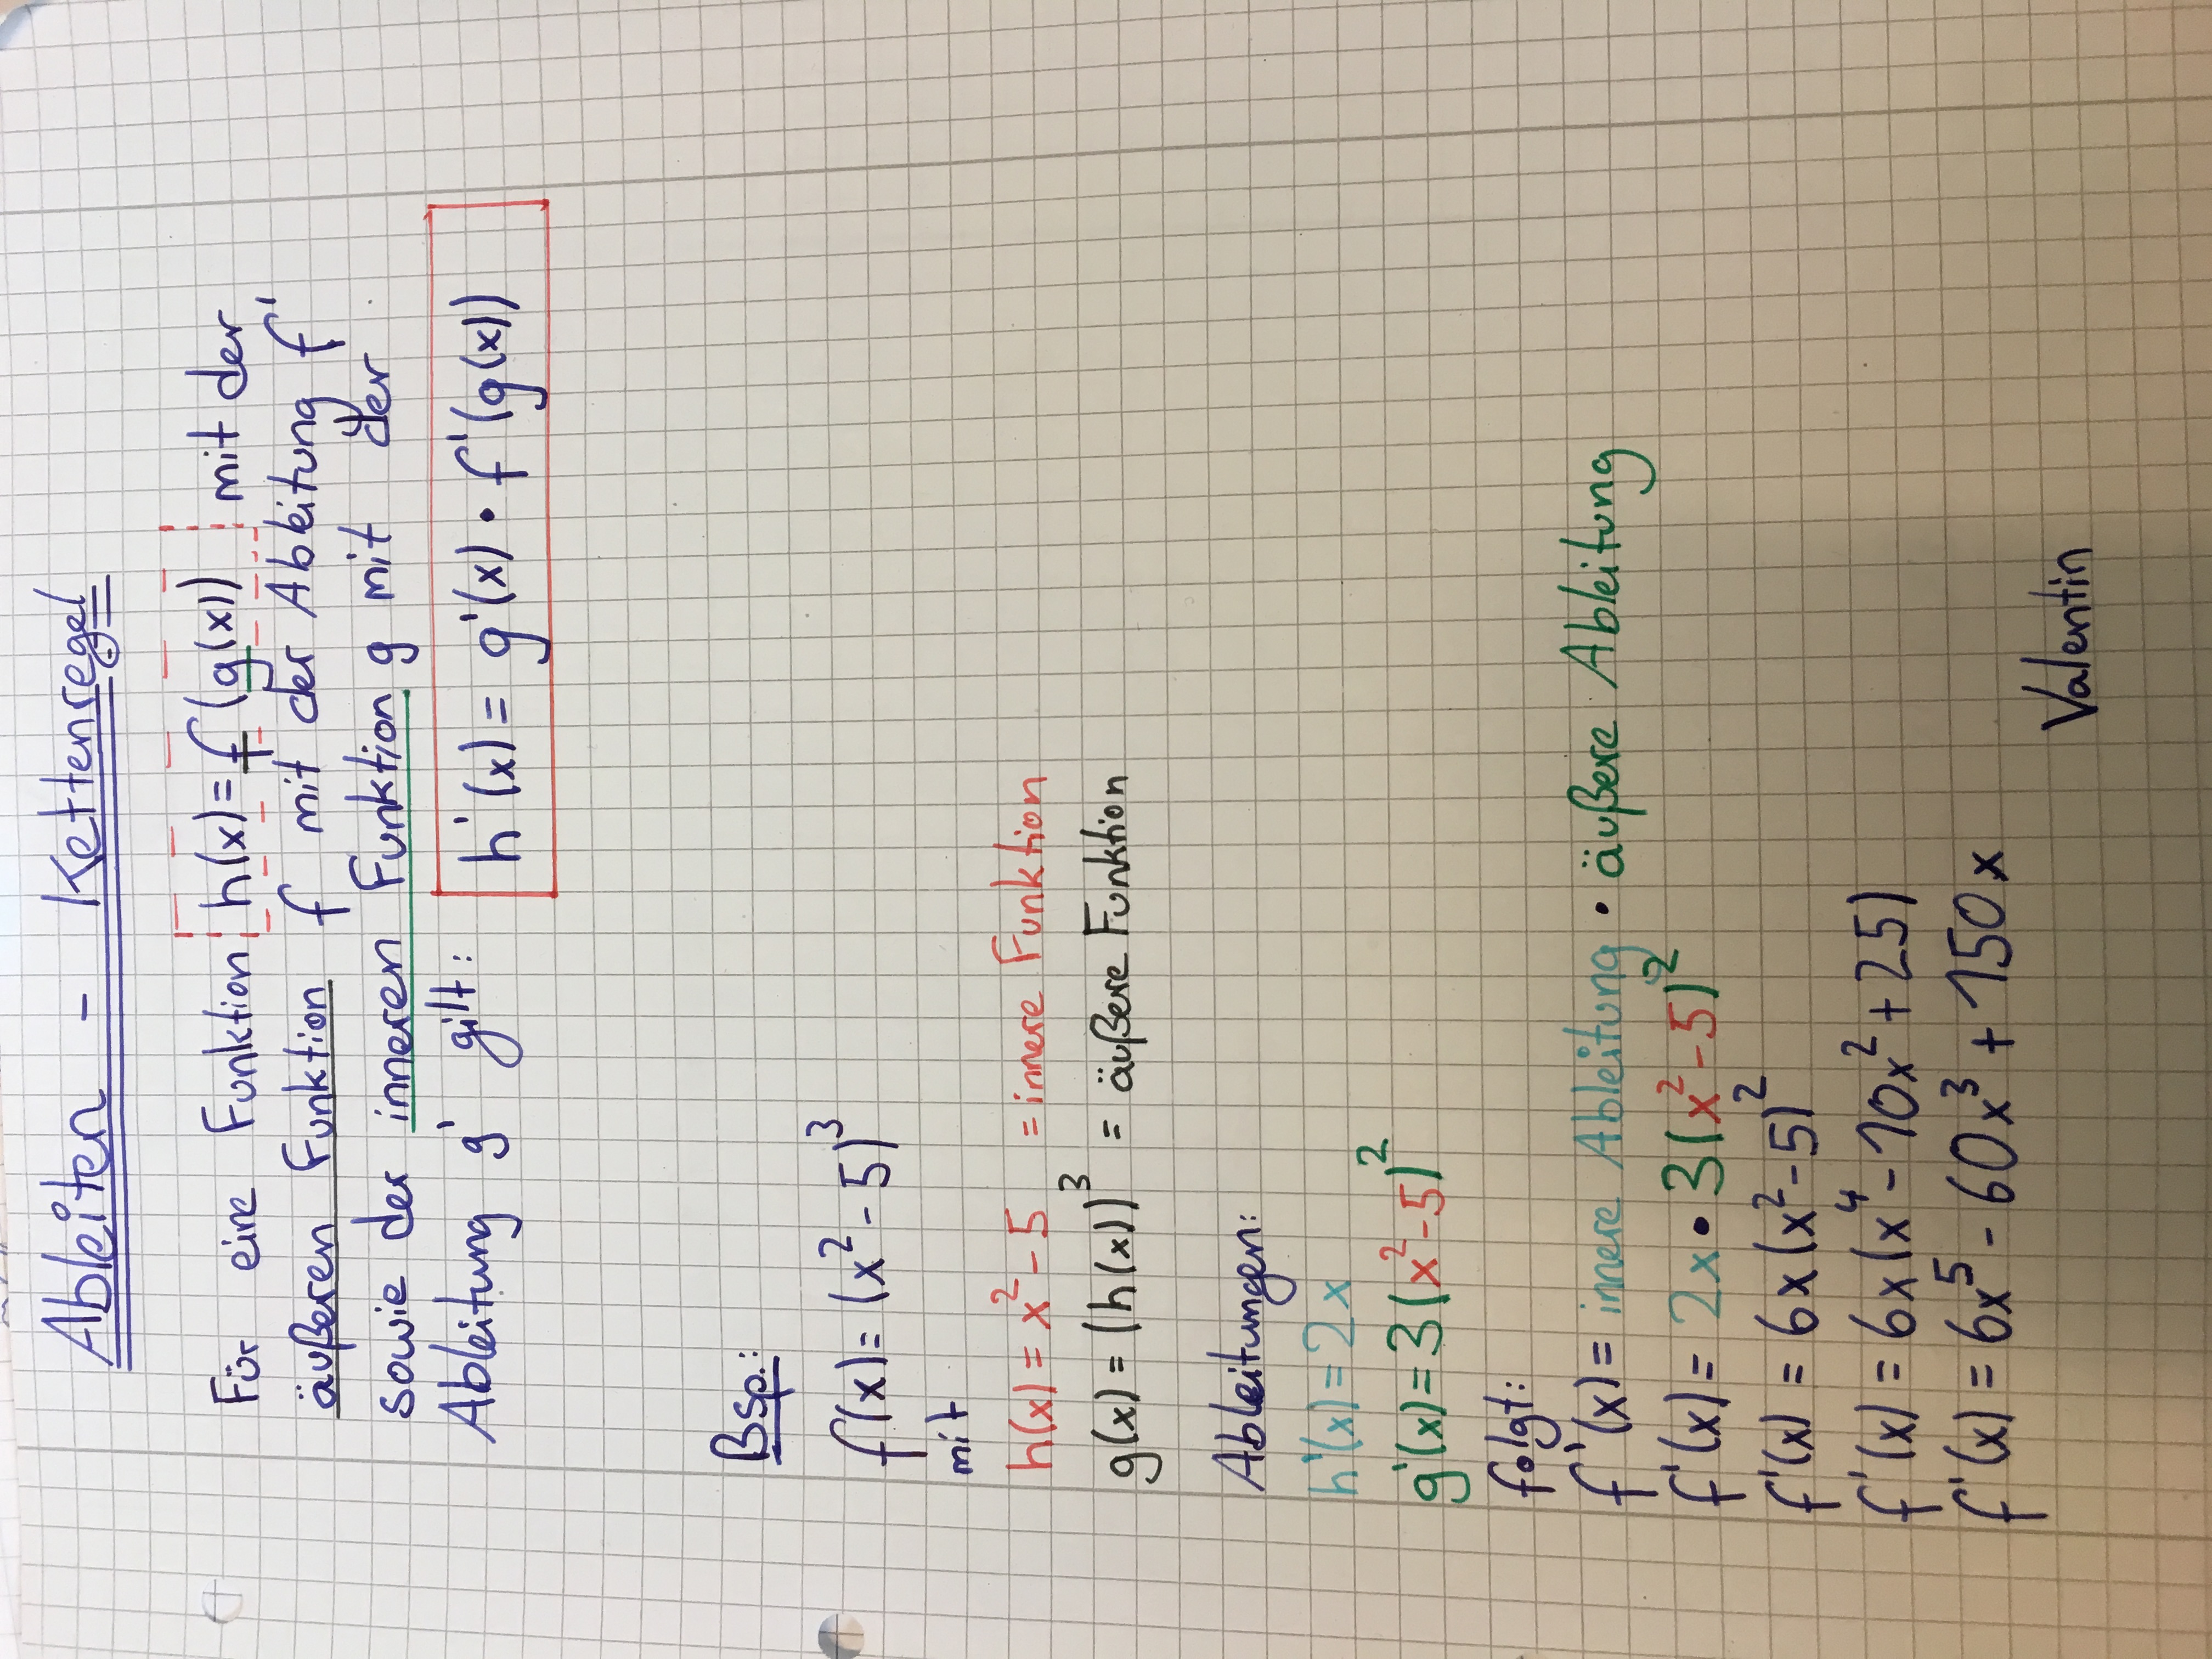 Ableiten - Kettenregel
Für eine Funktion h(x) = f(g(x)) mit der
äußeren Funktion f mit der Ableitung f'
sowie der inneren Funktion g mit der
Ableitung g' gilt: h'(x) = g'(x) • f'(g(x))
Bsp.:
f(x) = (x² - 5)³
mit
h(x) = x² - 5 = innere Funktion
g(x) = (h(x))³ = äußere Funktion
Ableitungen:
h'(x) = 2x
g'(x) = 3(x² - 5)²
folgt:
f'(x) = innere Ableitung • äußere Ableitung
f'(x) = 2x • 3(x² - 5)²
f'(x) = 6x(x² - 5)²
f'(x) = 6x(x⁴ - 10x² + 25)
f'(x) = 6x⁵ - 60x³ + 150x
Valentin